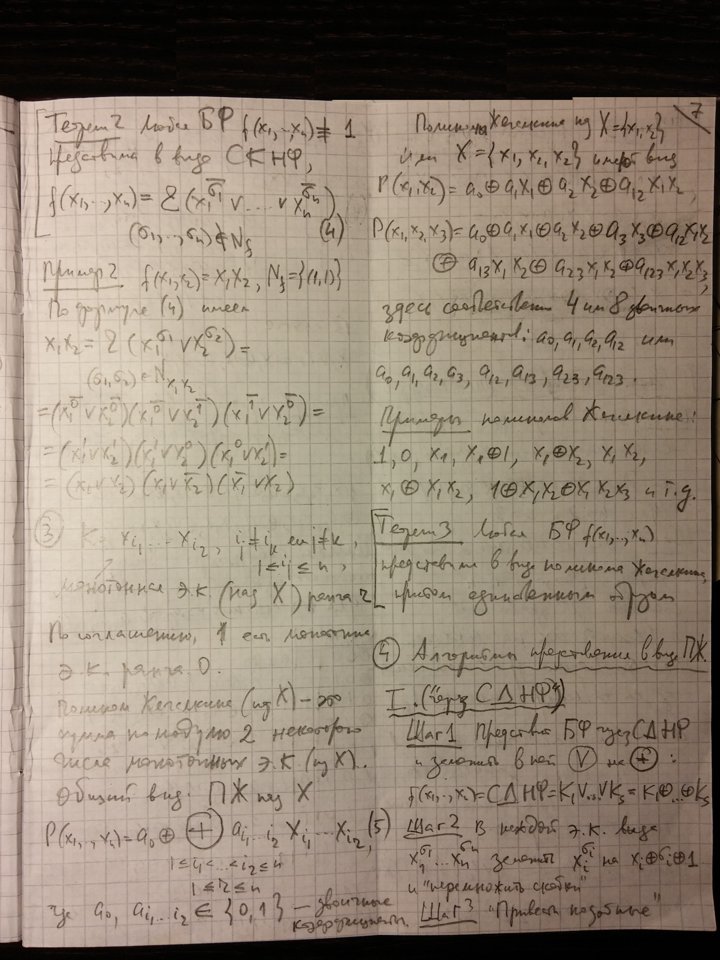 Теорема 2 Любая БФ f(x₁,..,xₙ) ≢ 1
представима в виде СКНФ,
f(x₁,...,xₙ) = & (x₁^σ̄₁ ∨ ... ∨ xₙ^σ̄ₙ)
(σ₁,..,σₙ) ∈ N_f (4)
Пример 2 f(x₁,x₂) = x₁x₂, N_f = {(1,1)}
По формуле (4) имеем
x₁x₂ = & (x₁^σ̄₁ ∨ x₂^σ̄₂) =
(σ₁,σ₂) ∈ N̄_x₁x₂
= (x₁^0̄ ∨ x₂^0̄)(x₁^0̄ ∨ x₂^1̄)(x₁^1̄ ∨ x₂^0̄) =
= (x₁¹ ∨ x₂¹)(x₁¹ ∨ x₂⁰)(x₁⁰ ∨ x₂¹) =
= (x₁ ∨ x₂)(x₁ ∨ x̄₂)(x̄₁ ∨ x₂)
③ K = x_i₁ ... x_i₂, i_j ≠ i_k если j ≠ k,
1 ≤ i_j ≤ n,
монотонная э.к. (над X) ранга r
По соглашению, 1 есть монотонная
э.к. ранга 0.
Полином Жегалкина (над X) – это
сумма по модулю 2 некоторого
числа монотонных э.к. (над X).
Общий вид ПЖ над X
P(x₁,..,xₙ) = a₀ ⊕ ⊕ a_i₁...i₂ x_i₁ ... x_i₂, (5)
1 ≤ i₁ < ... < i₂ ≤ n
1 ≤ r ≤ n
где a₀, a_i₁...i₂ ∈ {0,1} – двоичные
коэффициенты.
7
Полином Жегалкина над X = {x₁,x₂}
или X = {x₁, x₂, x₃} имеют вид
P(x₁,x₂) = a₀ ⊕ a₁x₁ ⊕ a₂x₂ ⊕ a₁₂x₁x₂,
P(x₁,x₂,x₃) = a₀ ⊕ a₁x₁ ⊕ a₂x₂ ⊕ a₃x₃ ⊕ a₁₂x₁x₂
⊕ a₁₃x₁x₂ ⊕ a₂₃x₁x₂ ⊕ a₁₂₃x₁x₂x₃,
здесь соответственно 4 или 8 двоичных
коэффициентов: a₀, a₁, a₂, a₁₂ или
a₀, a₁, a₂, a₃, a₁₂, a₁₃, a₂₃, a₁₂₃.
Примеры полиномов Жегалкина:
1, 0, x₁, x₁⊕1, x₁⊕x₂, x₁x₂,
x₁ ⊕ x₁x₂, 1⊕x₁x₂⊕x₁x₂x₃ и т.д.
Теорема 3 Любая БФ f(x₁,..,xₙ)
представима в виде полинома Жегалкина,
притом единственным образом
④ Алгоритмы представления в виде ПЖ
I. ("через СДНФ")
Шаг 1 Представить БФ через СДНФ
и заменить в ней ∨ на ⊕:
f(x₁,..,xₙ) = СДНФ = K₁∨..∨K_s = K₁⊕..⊕K_s
Шаг 2 В каждой э.к. вида
x₁^σ₁ ... xₙ^σₙ заменить x_i^σ_i на x_i⊕σ_i⊕1
и "перемножить скобки"
Шаг 3 "Привести подобные"